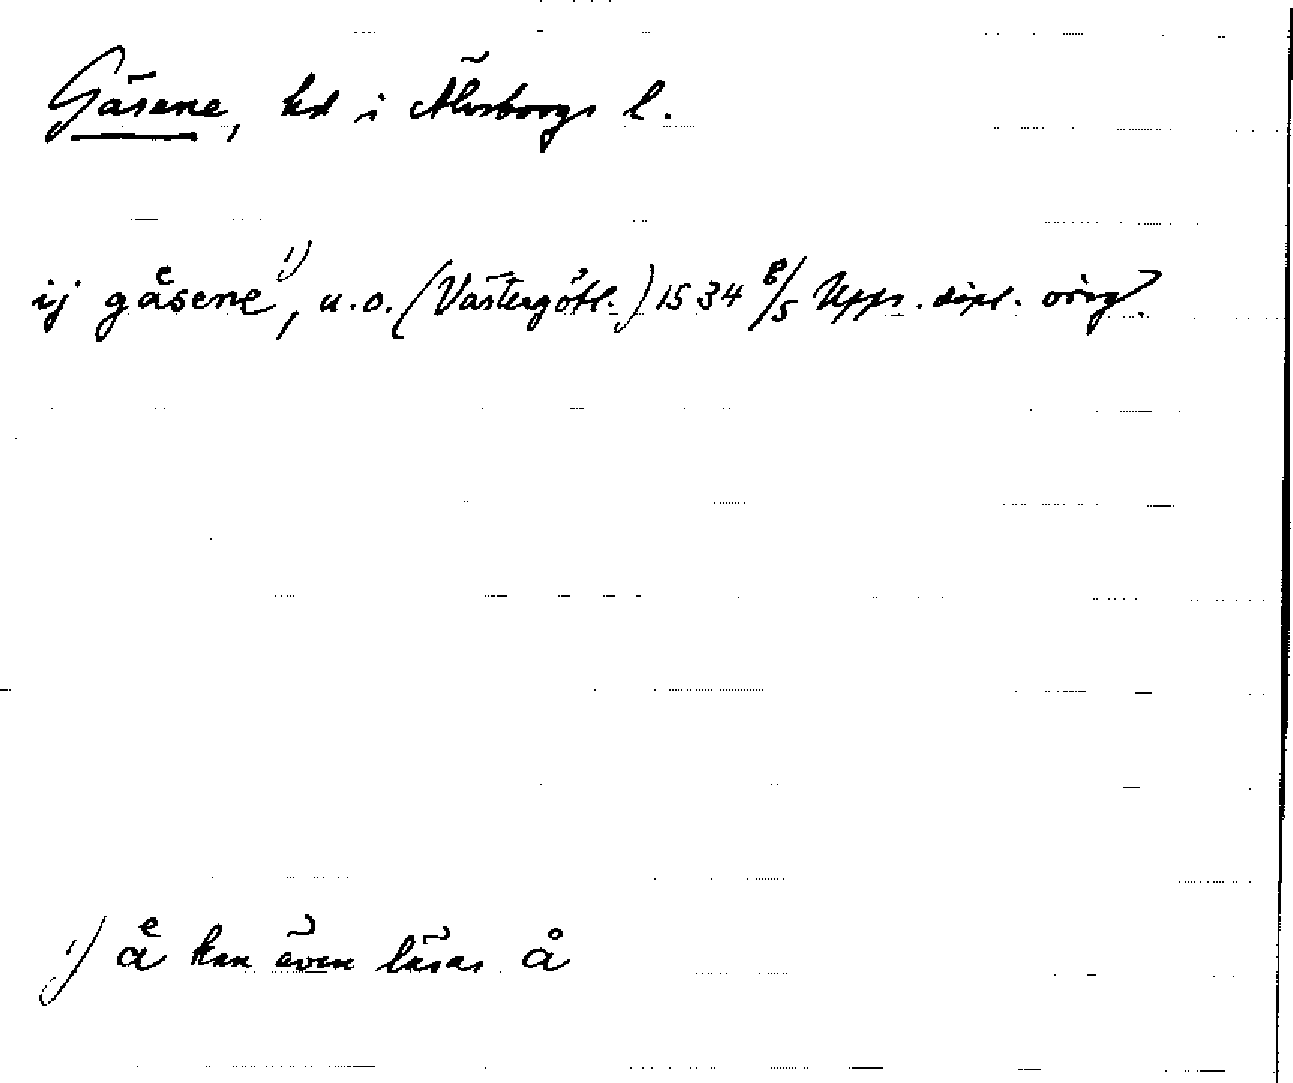 Gäsene, hd i Älvsborgs l.
ij gaͤsene¹⁾, u.o. (Västergötl.) 1534 8/5 Upps. dipl. orig.
¹⁾ aͤ kan även läsas å